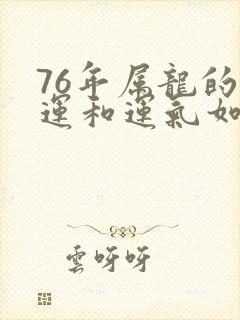 76年属龙的
運和運氣如
雲呀呀